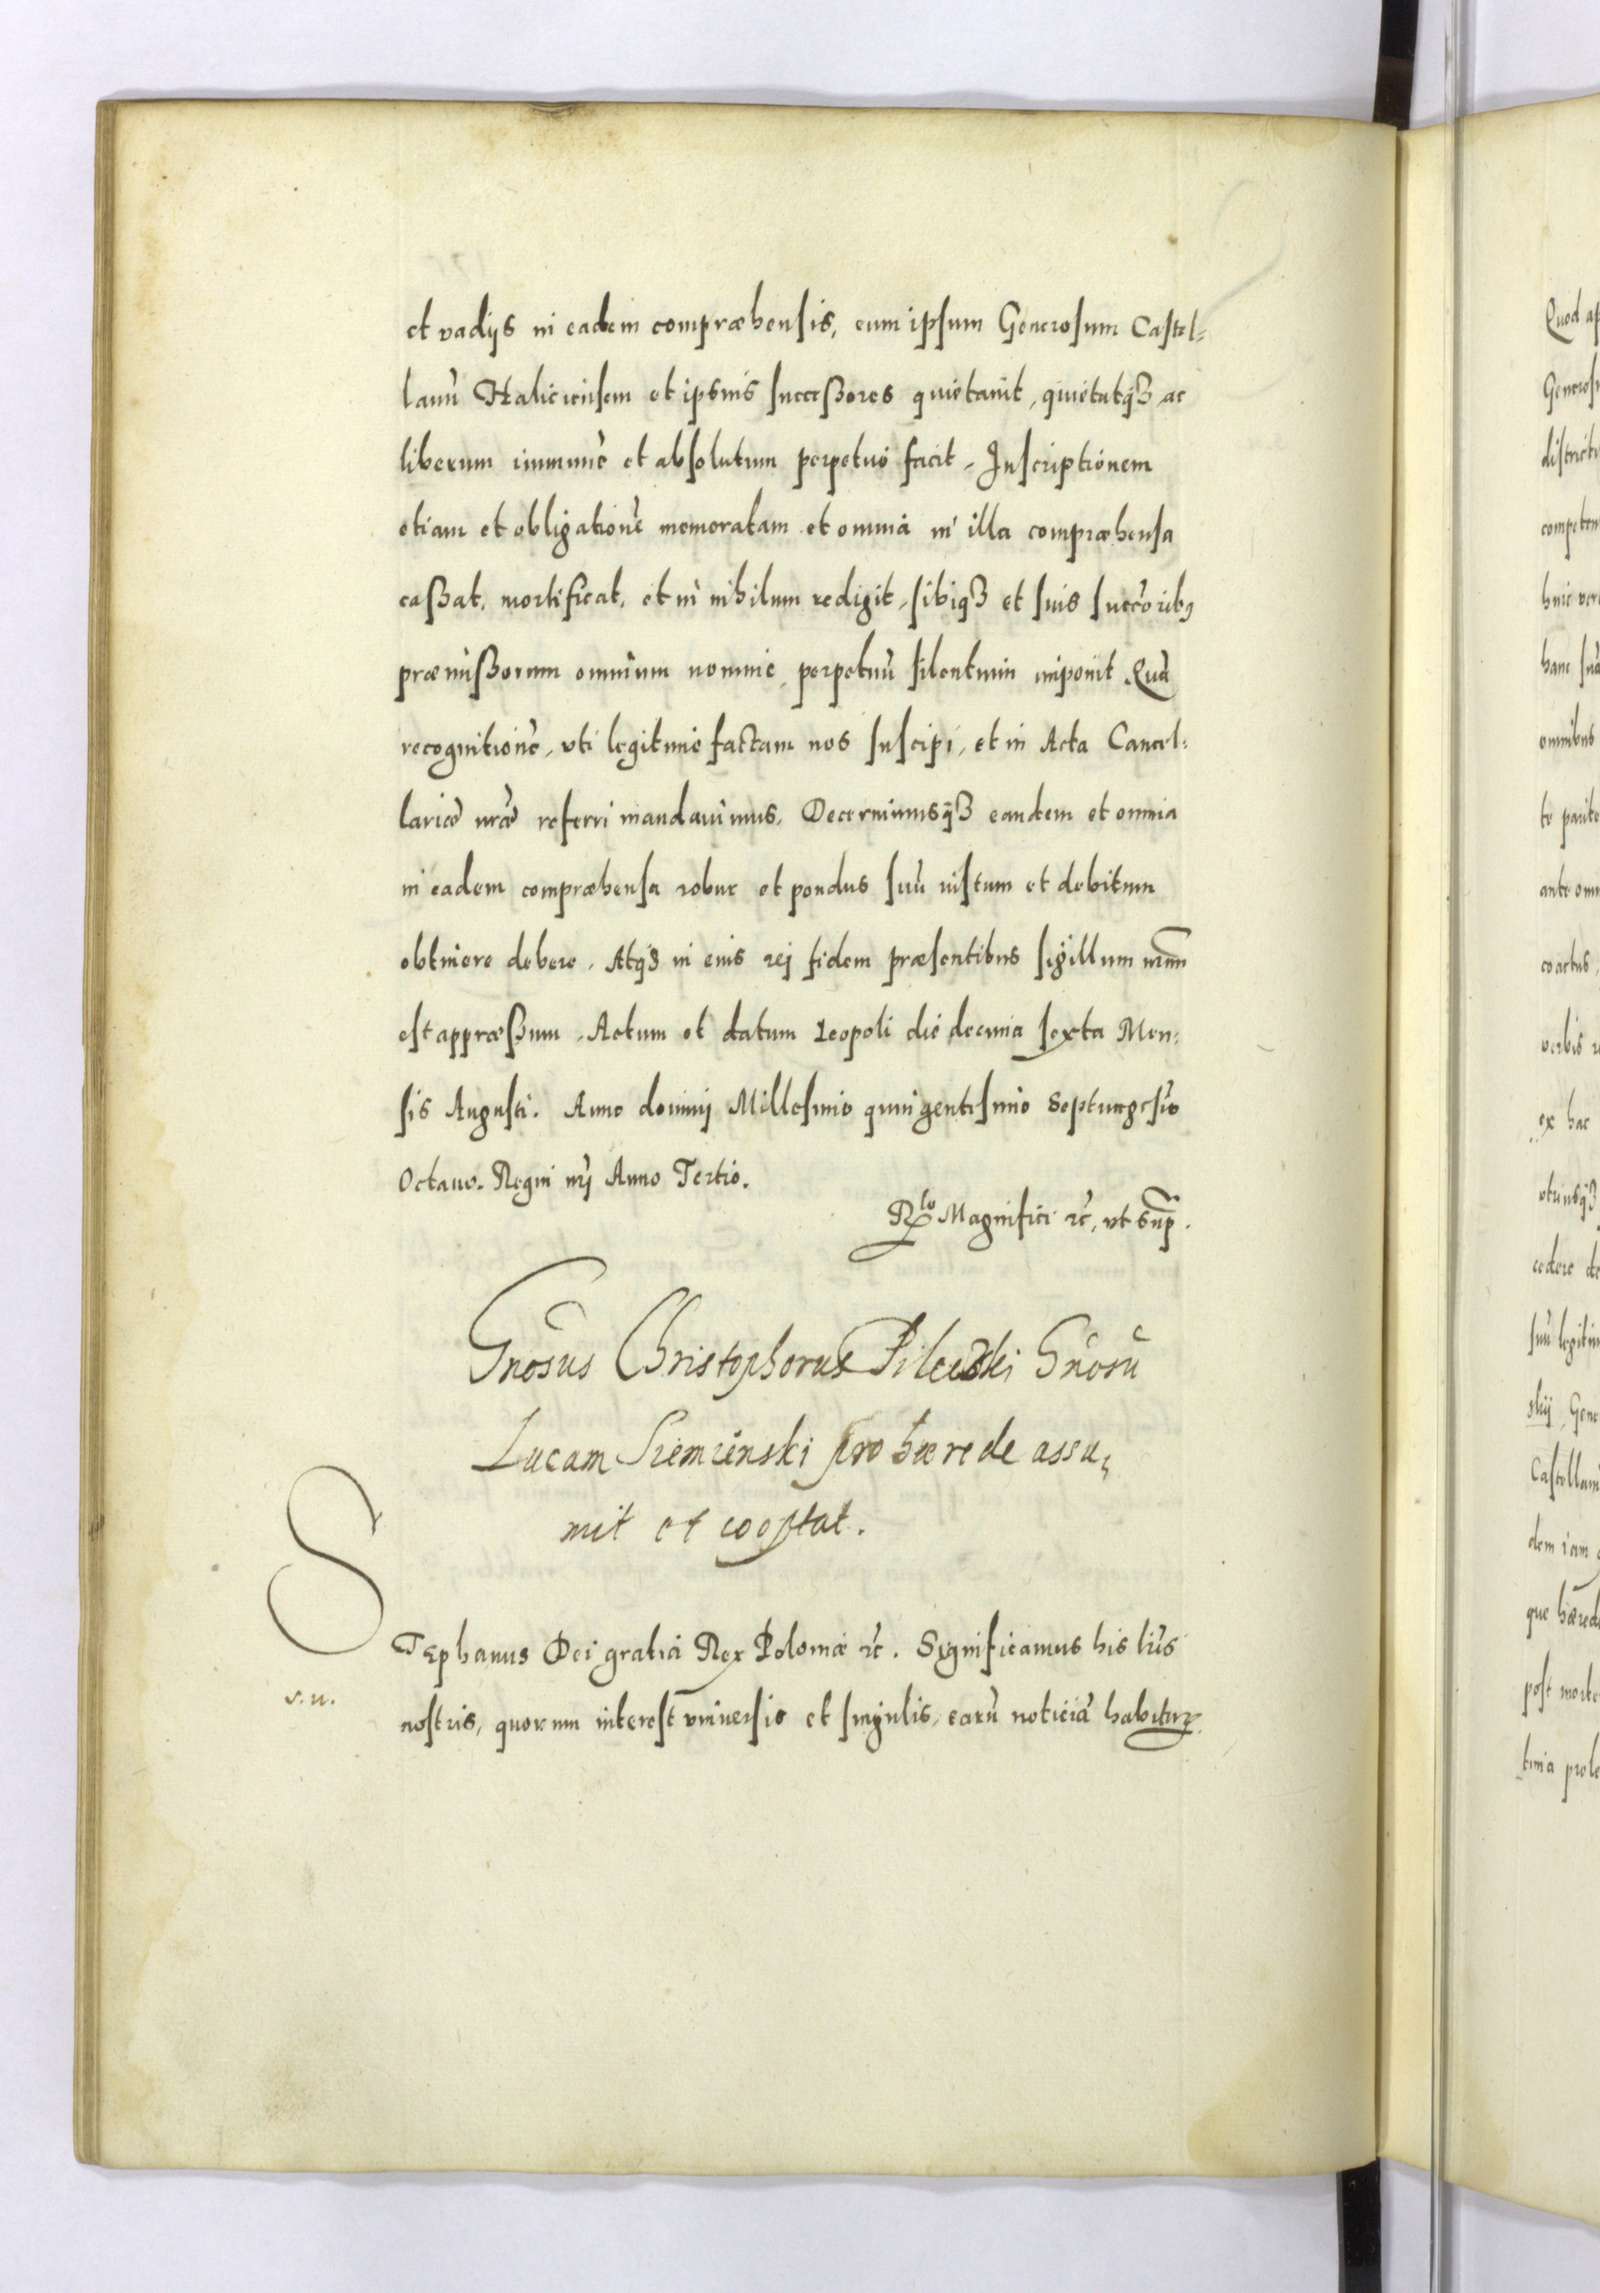 et vadijs in eadem compræhensis, eum ipsum Generosum Castel-
lanū Haliciensem et ipsius successores quietauit, quietatqȝ ac
liberum immunē et absolutum perpetuo facit. Inscriptionem
etiam et obligationē memoratam et omnia in illa compræhensa
cassat, mortificat, et in nihilum redigit, sibiqȝ et suis succoribꝰ
præmissorum omnium nomine perpetuū silentium imponit. Quā
recognitionē, vti legitime factam nos suscipi, et in Acta Cancel-
lariæ nr̃æ referri mandauimus. Decernimusqȝ eandem et omnia
in eadem compræhensa robur et pondus suū iustum et debitum
obtinere debere. Atqȝ in eius rej fidem præsentibus sigillum nr̃um
est appræssum. Actum et datum Leopoli die decima sexta Men-
sis Augusti. Anno dominj Millesimo quingentesimo Septuagesio
Octauo. Regni nrj Anno Tertio.
Rlo Magnifici ꝛc, vt sup.
Gnosus Christophorus Pileczki Gnosū
Lucam Siemienski pro hærede assu-
mit et cooptat.
STEphanus Dei gratia Rex Poloniæ ꝛc. Significamus his lr̃is
nostris, quorum interest vniuersis et singulis, earū noticiā habituꝝ.
s. u.
Quod
Generos
district
competen
huic ver
hanc suā
omnibus
te parite
ante omn
coactus,
verbis
ex hac
vtriusqȝ
cedere de
suū legitim
skij, Gene
Castellanū
dem iam
que hæred
post morte
tima prole